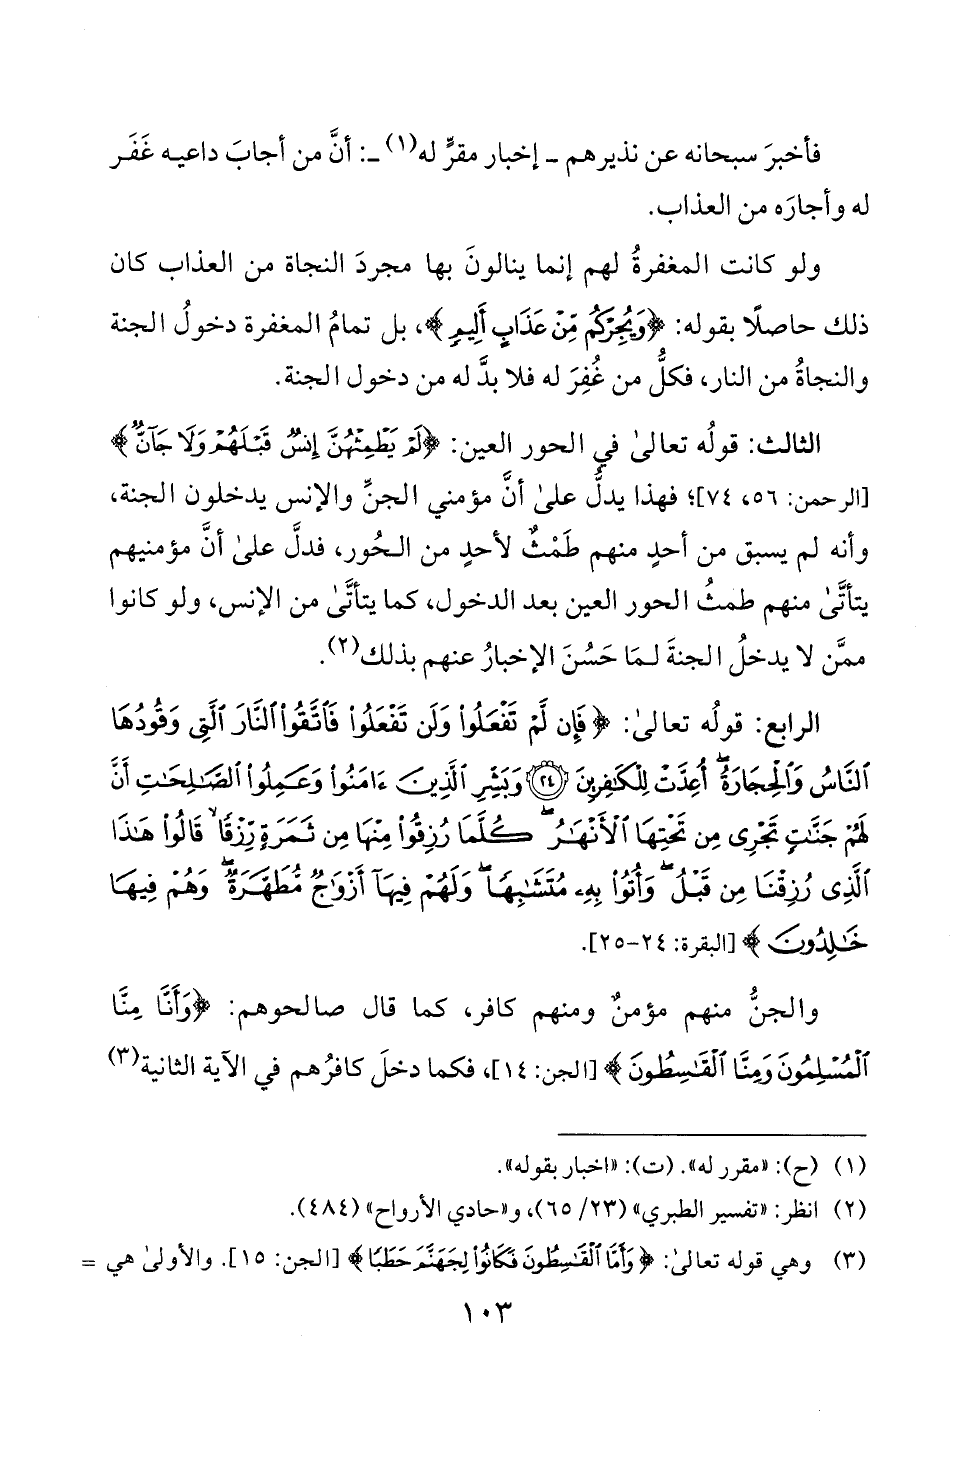 فأخبرَ سبحانه عن نذيرهم ـ إخبار مقرٍّ له(١) ـ: أنَّ من أجابَ داعيه غَفَر
له وأجارَه من العذاب.
ولو كانت المغفرةُ لهم إنما ينالونَ بها مجردَ النجاة من العذاب كان
ذلك حاصلًا بقوله: ﴿وَيُجِرْكُم مِّنْ عَذَابٍ أَلِيمٍ﴾، بل تمامُ المغفرة دخولُ الجنة
والنجاةُ من النار، فكلُّ من غُفِرَ له فلا بدَّ له من دخول الجنة.
الثالث: قولُه تعالىٰ في الحور العين: ﴿لَمْ يَطْمِثْهُنَّ إِنسٌ قَبْلَهُمْ وَلَا جَآنٌّ﴾
[الرحمن: ٥٦، ٧٤]؛ فهذا يدلُّ علىٰ أنَّ مؤمني الجنِّ والإنس يدخلون الجنة،
وأنه لم يسبق من أحدٍ منهم طَمْثٌ لأحدٍ من الحُور، فدلَّ علىٰ أنَّ مؤمنيهم
يتأتَّىٰ منهم طمثُ الحور العين بعد الدخول، كما يتأتَّىٰ من الإنس، ولو كانوا
ممَّن لا يدخلُ الجنةَ لمَا حَسُنَ الإخبارُ عنهم بذلك(٢).
الرابع: قولُه تعالىٰ: ﴿فَإِن لَّمْ تَفْعَلُوا۟ وَلَن تَفْعَلُوا۟ فَٱتَّقُوا۟ ٱلنَّارَ ٱلَّتِى وَقُودُهَا
ٱلنَّاسُ وَٱلْحِجَارَةُ ۖ أُعِدَّتْ لِلْكَٰفِرِينَ ۝٢٤ وَبَشِّرِ ٱلَّذِينَ ءَامَنُوا۟ وَعَمِلُوا۟ ٱلصَّٰلِحَٰتِ أَنَّ
لَهُمْ جَنَّٰتٍ تَجْرِى مِن تَحْتِهَا ٱلْأَنْهَٰرُ ۖ كُلَّمَا رُزِقُوا۟ مِنْهَا مِن ثَمَرَةٍ رِّزْقًا ۙ قَالُوا۟ هَٰذَا
ٱلَّذِى رُزِقْنَا مِن قَبْلُ ۖ وَأُتُوا۟ بِهِۦ مُتَشَٰبِهًا ۖ وَلَهُمْ فِيهَآ أَزْوَٰجٌ مُّطَهَّرَةٌ ۖ وَهُمْ فِيهَا
خَٰلِدُونَ﴾ [البقرة: ٢٤-٢٥].
والجنُّ منهم مؤمنٌ ومنهم كافر، كما قال صالحوهم: ﴿وَأَنَّا مِنَّا
ٱلْمُسْلِمُونَ وَمِنَّا ٱلْقَٰسِطُونَ﴾ [الجن: ١٤]، فكما دخلَ كافرُهم في الآية الثانية(٣)
(١) (ح): «مقرر له». (ت): «اخبار بقوله».
(٢) انظر: «تفسير الطبري» (٢٣/ ٦٥)، و«حادي الأرواح» (٤٨٤).
(٣) وهي قوله تعالىٰ: ﴿وَأَمَّا ٱلْقَٰسِطُونَ فَكَانُوا۟ لِجَهَنَّمَ حَطَبًا﴾ [الجن: ١٥]. والأولىٰ هي =
١٠٣